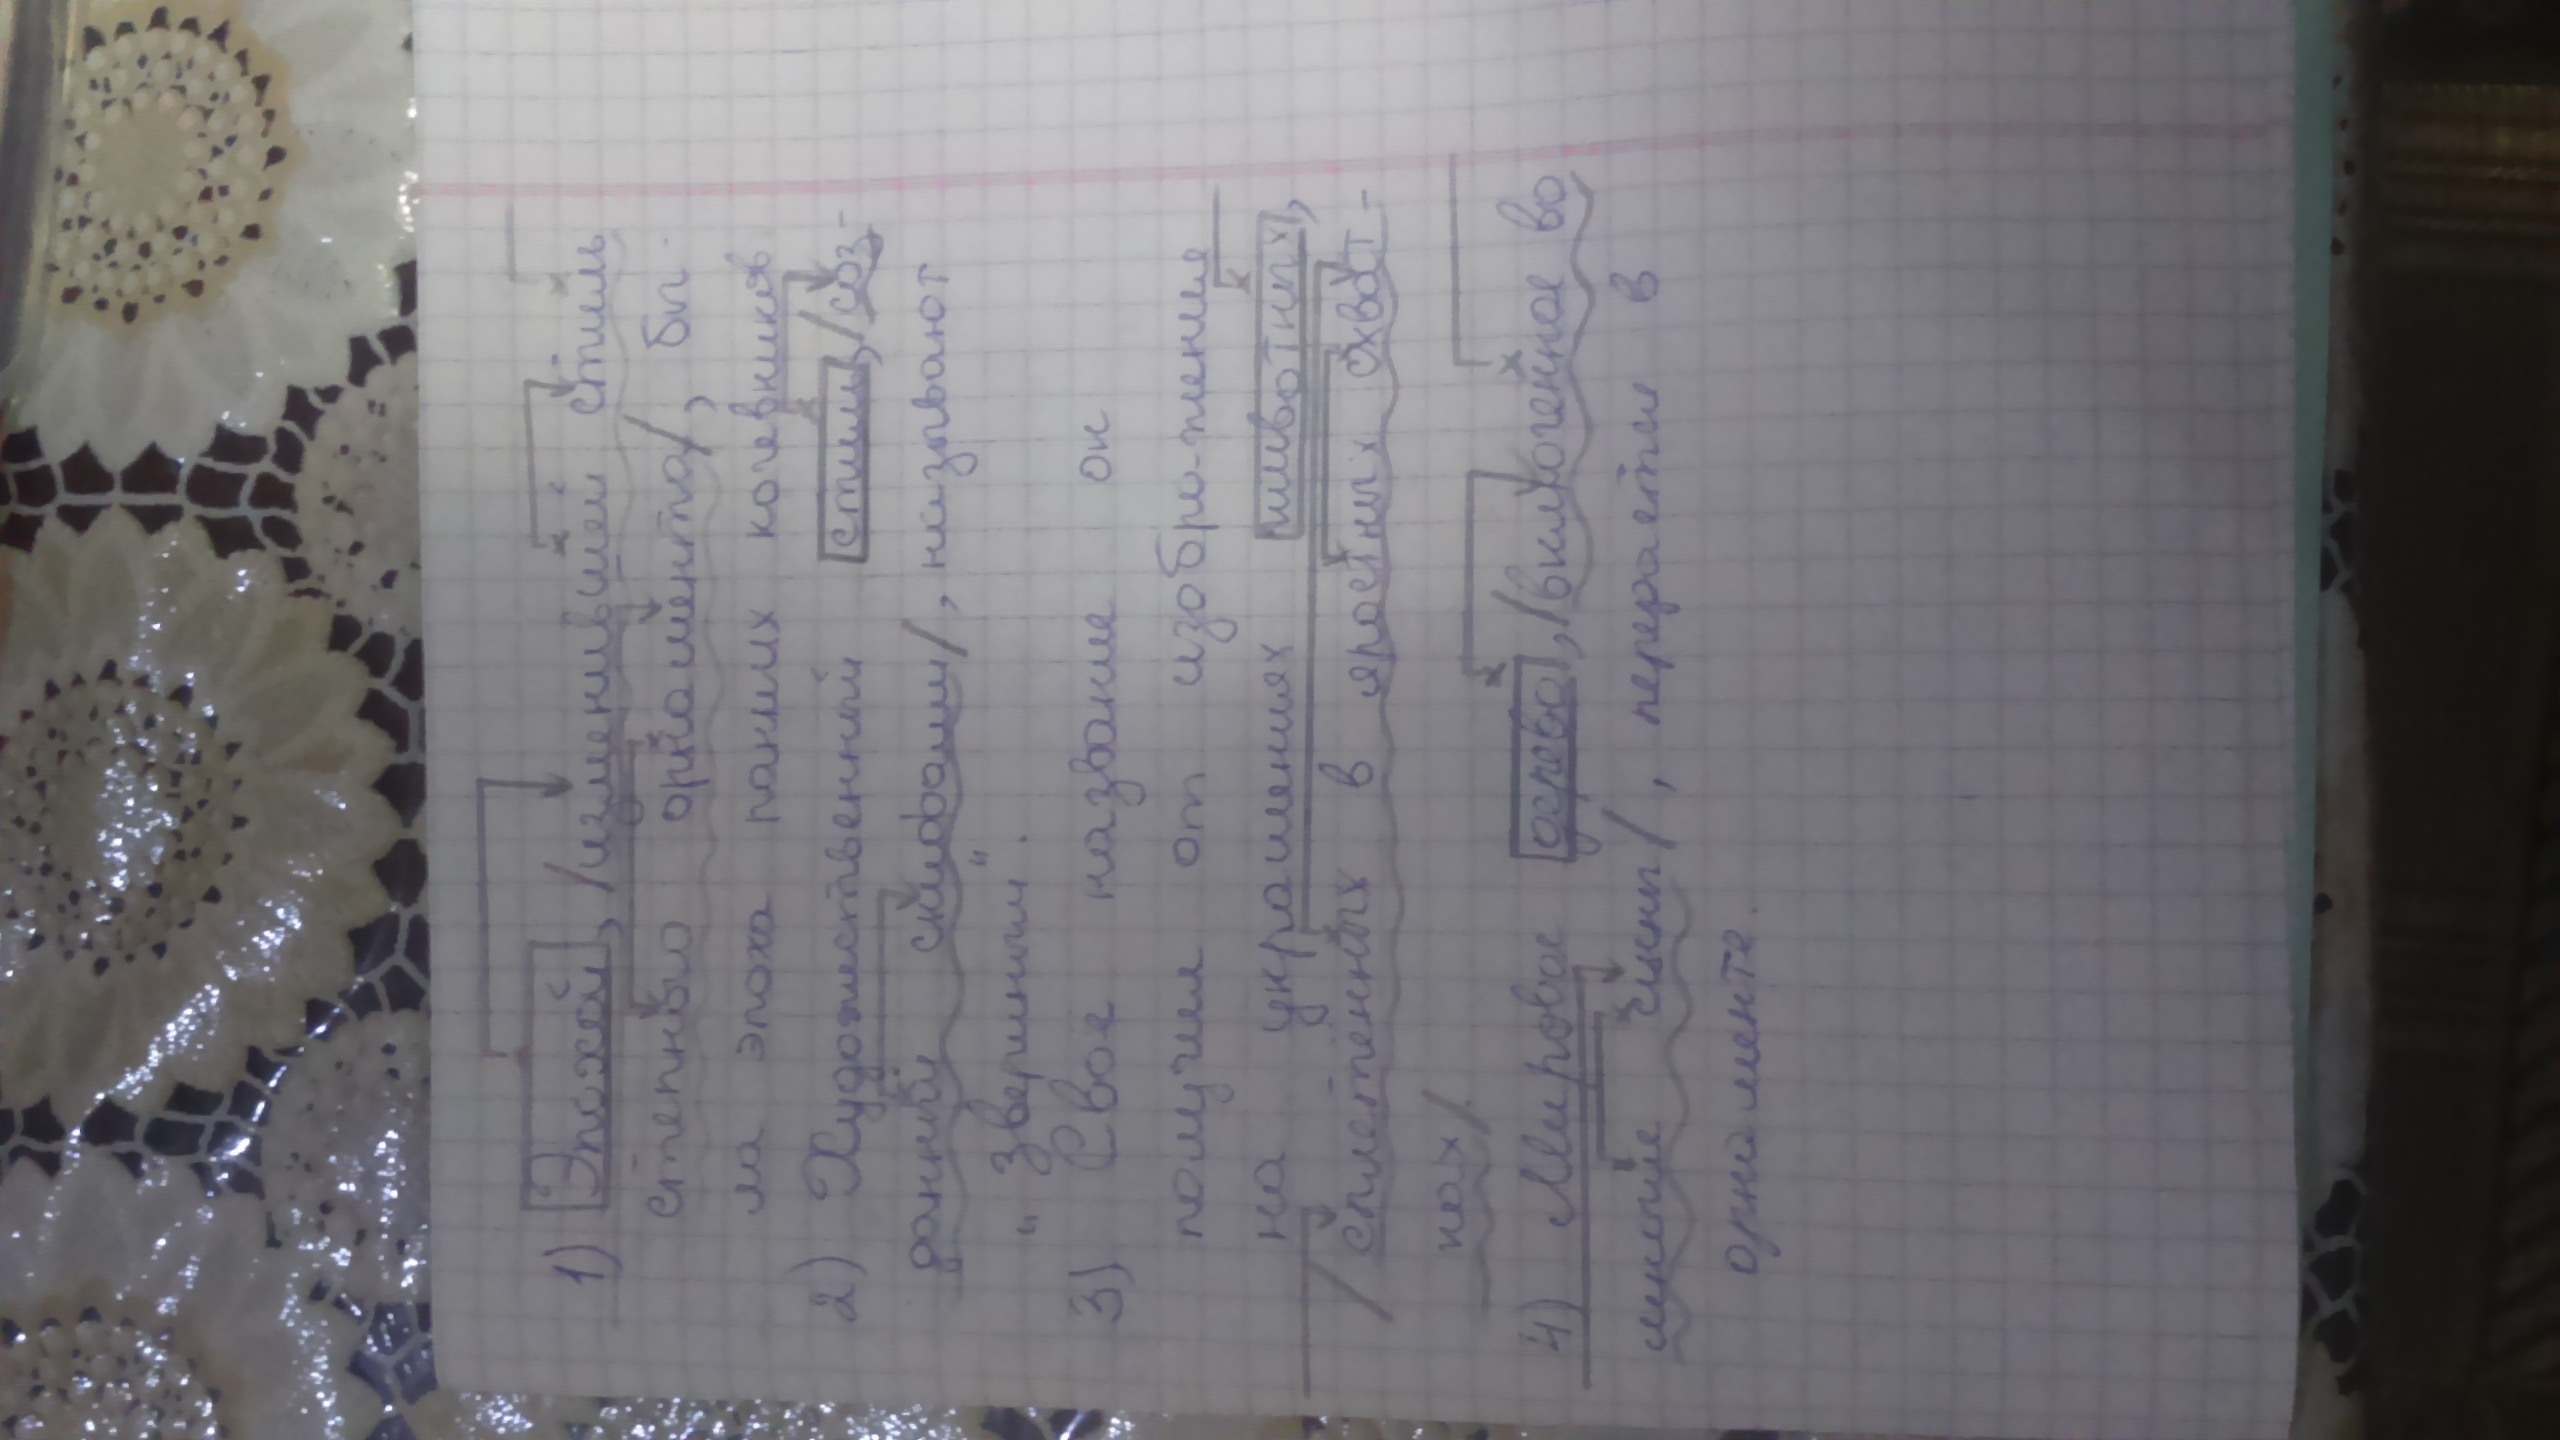 1) Эпохой, /изменившей стиль
степного орнамента/, бы-
ла эпоха ранних кочевников
2) Художественный стиль, /соз-
данный скифами/, называют
"звериным".
3) Свое название он
получил от изображения
на украшениях животных,
/сплетённых в яростных схват-
ках/.
4) Мировое дерево, /включённое во
многие сцены/, перерастает в
орнамент.